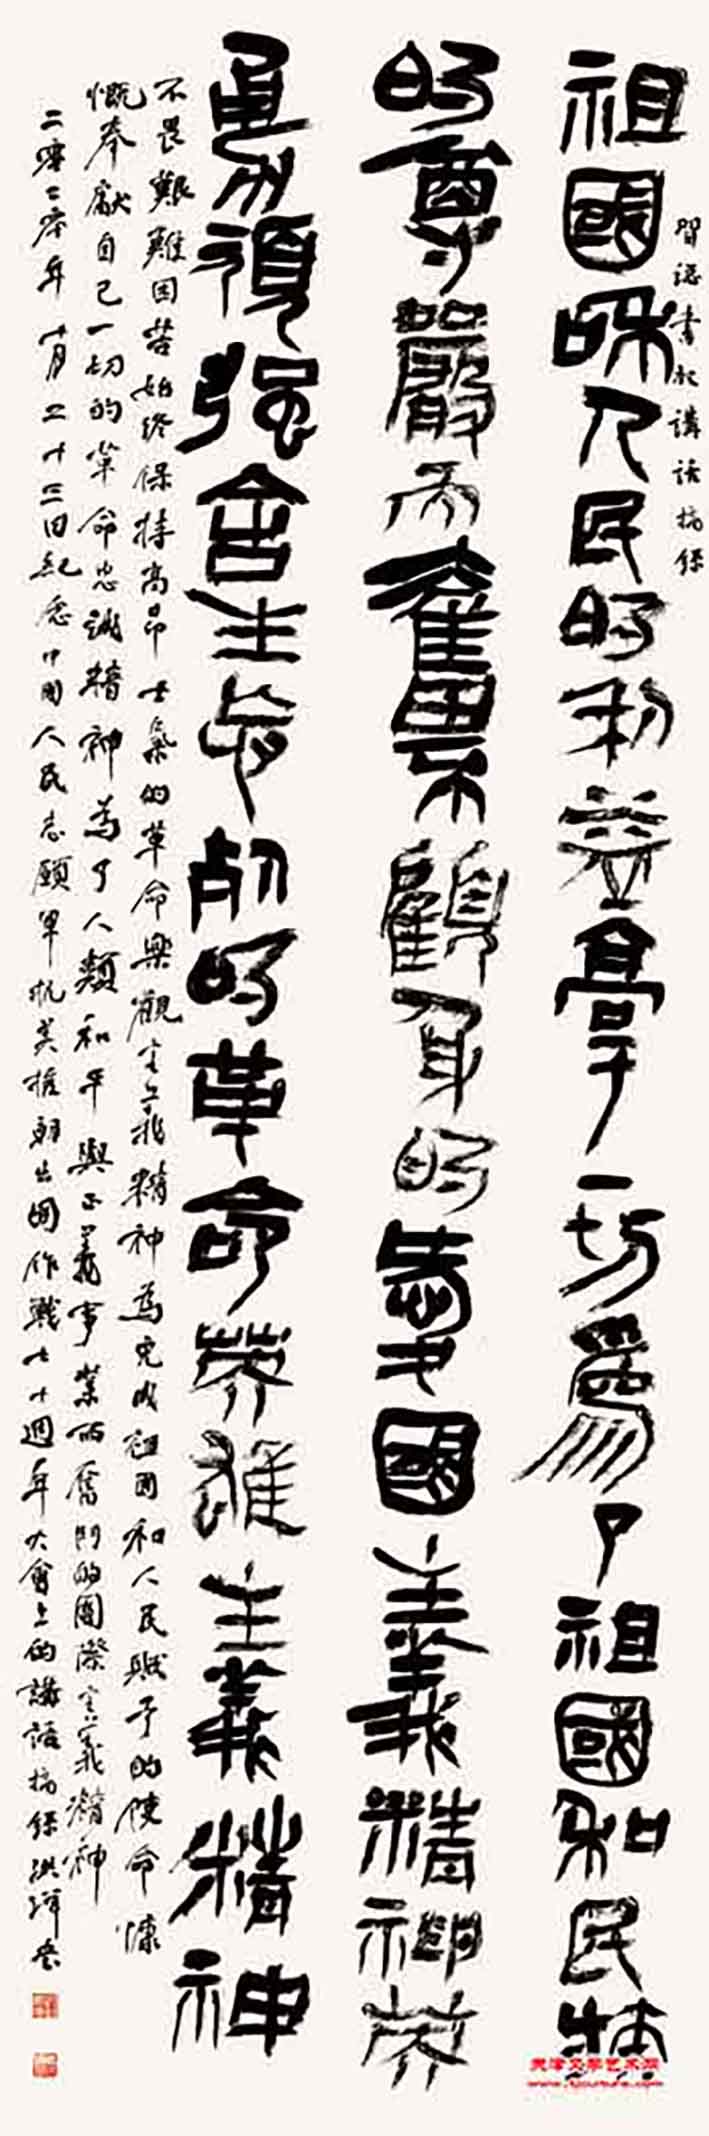 習總書記講話摘錄
祖國和人民的利益高于一切爲了祖國和民族
的尊嚴而奮不顧身的愛國主義精神英
勇頑强舍生忘死的革命英雄主義精神
不畏艱難困苦始終保持高昂士氣的革命樂觀主義精神為完成祖國和人民賦予的使命慷
慨奉獻自己一切的革命忠誠精神為了人類和平與正義事業而奮鬥的國際主義精神
二零二零年十月二十三日紀念中國人民志願軍抗美援朝出國作戰七十週年大會上的講話摘錄洪
天津文学艺术网